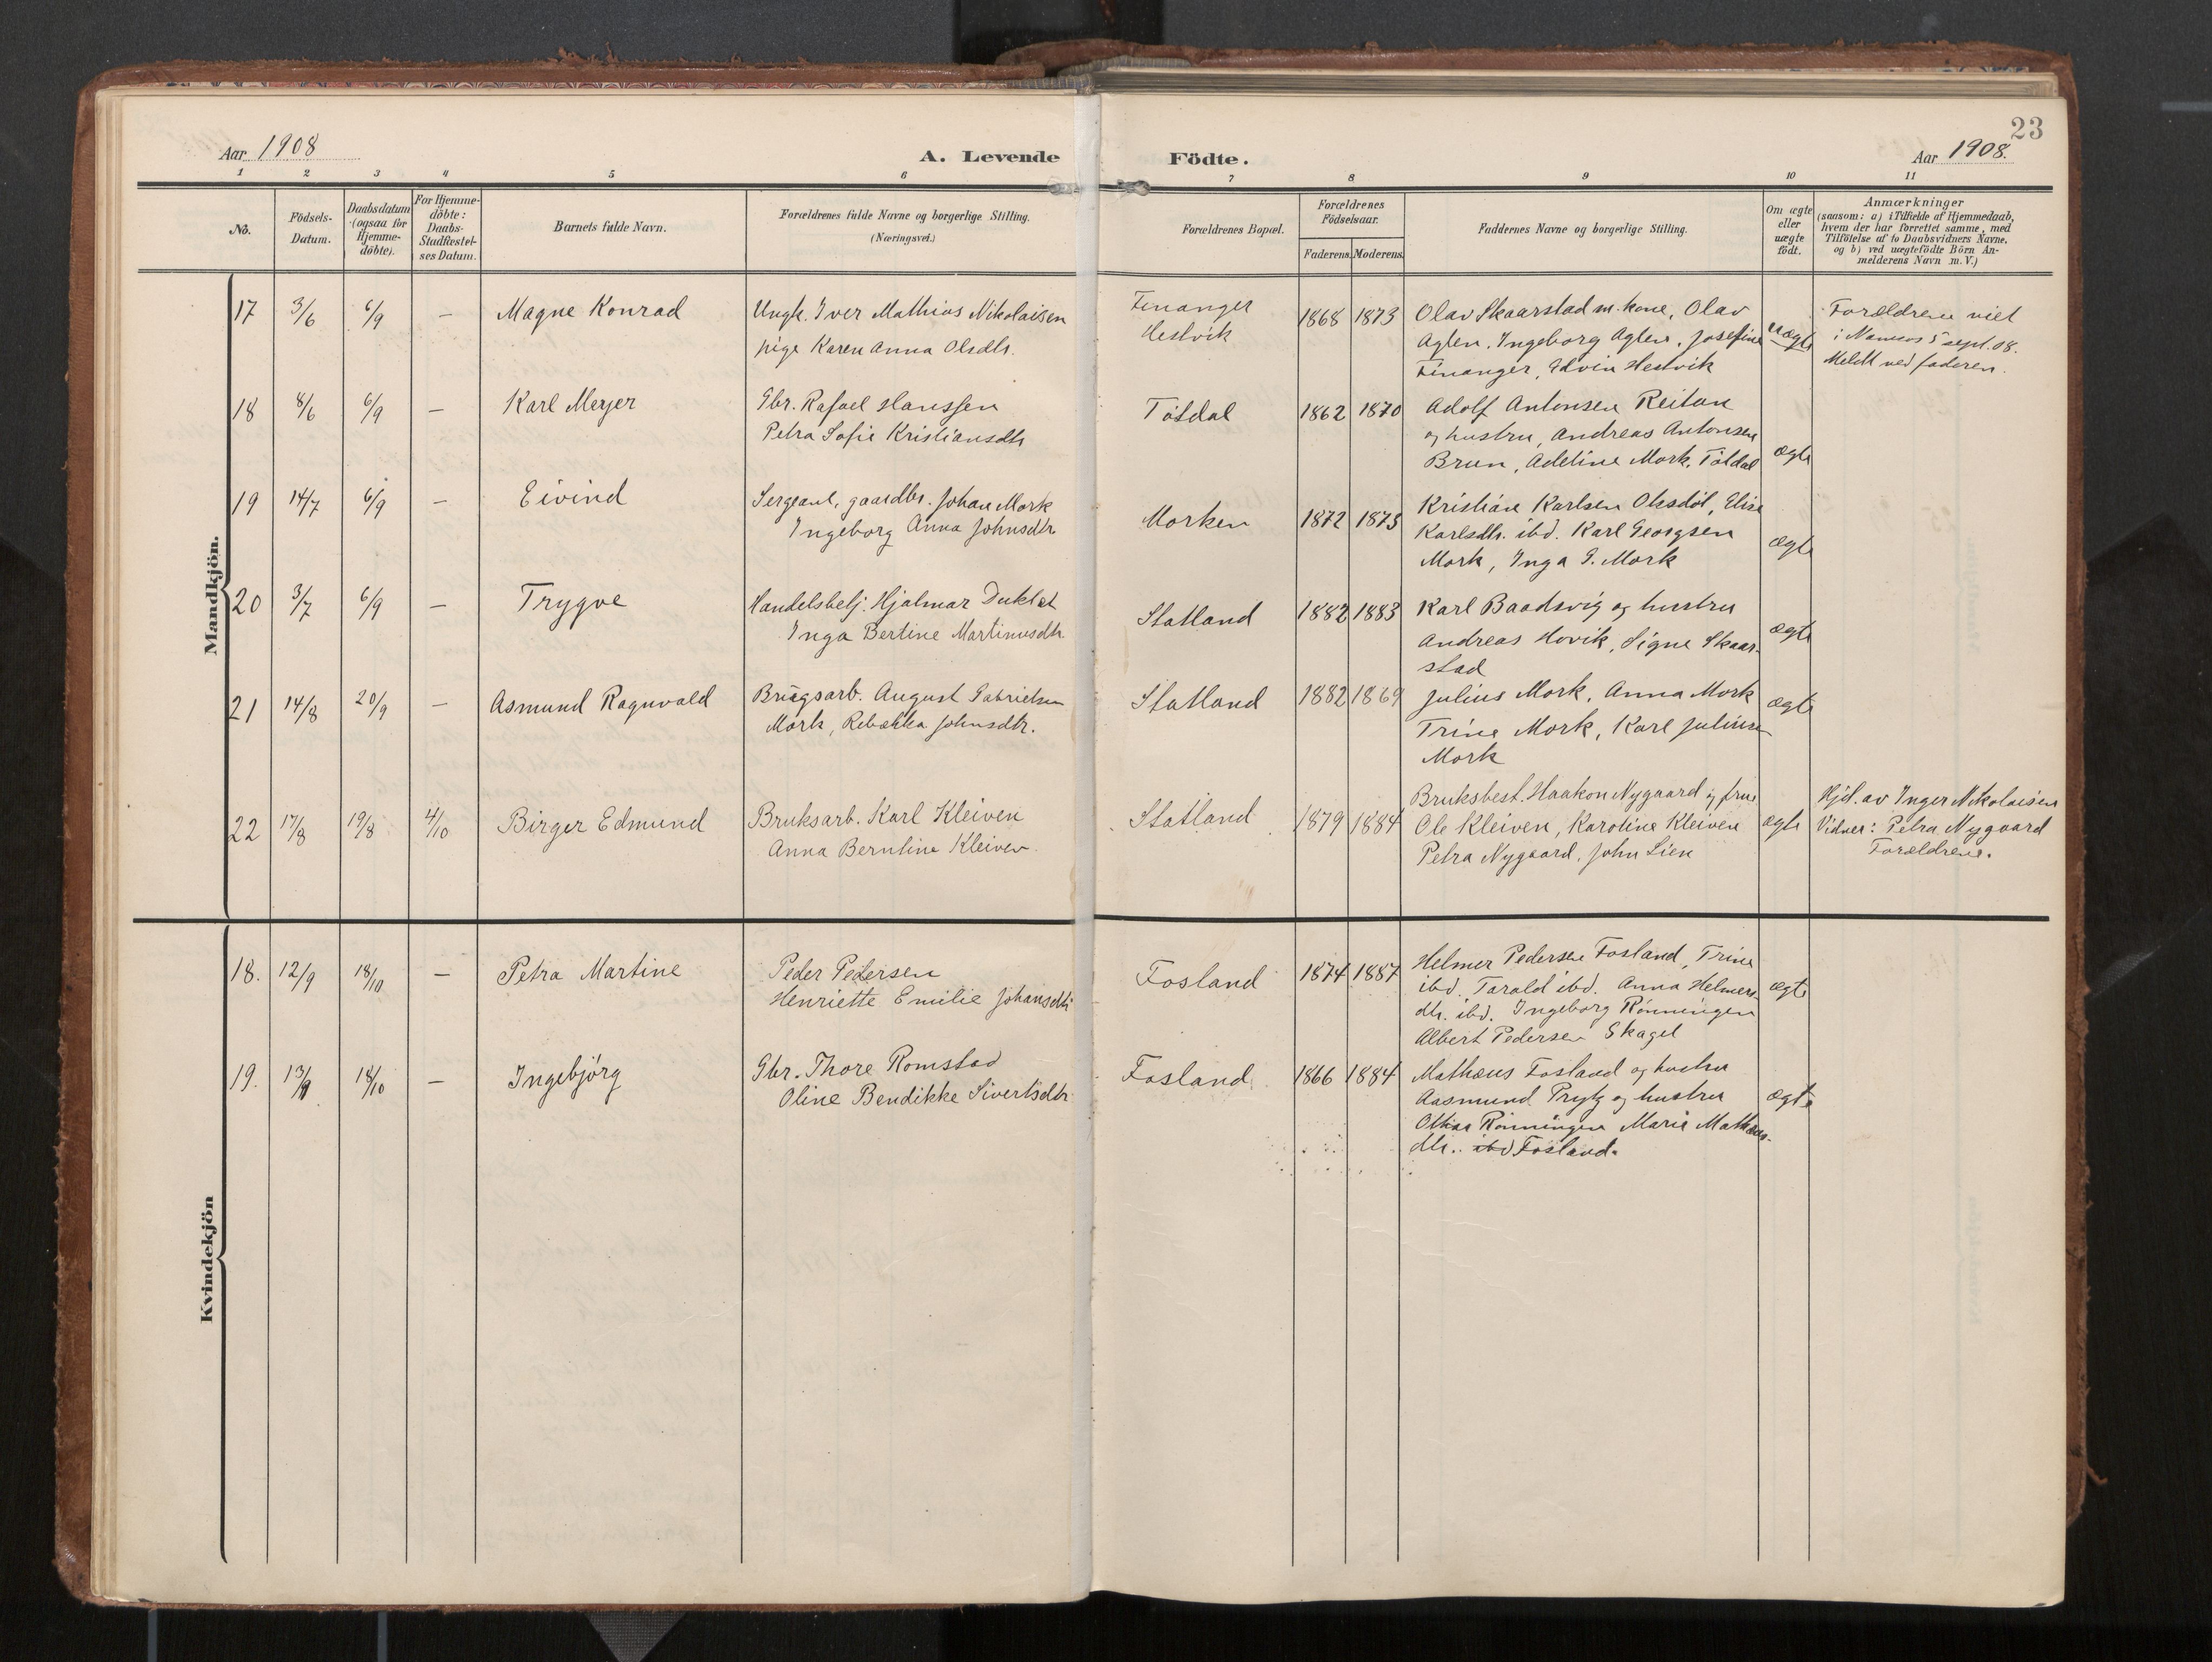 23
Aar 1908
A. Levende
Födte.
Aar 1908.
1 2 3 4 5 6 7 8 9 10 11
No.
Födsels-
Datum.
Daabsdatum
(ogsaa for
Hjemme-
döbte).
For Hjemme-
döbte:
Daabs-
Stadfæstel-
ses Datum.
Barnets fulde Navn.
Forældrenes fulde Navne og borgerlige Stilling.
(Næringsvei.)
Forældrenes Bopæl.
Forældrenes
Födselsaar.
Faderens. Moderens.
Faddernes Navne og borgerlige Stilling.
Om ægte
eller
uægte
födt.
Anmærkninger
(saasom: a) i Tilfælde af Hjemmedaab,
hvem der har forrettet samme, med
Tilföielse af to Daabsvidners Navne.
og b) ved uægtefödte Börn An-
melderens Navn m. V.)
Mandkjön.
17 3/6 6/9 — Magne Konrad
Ungk. Iver Mathias Nikolaisen
pige Karen Anna Olsdtr.
Finanger
Hestvik
1868 1873
Olav Skaarstad m. kone, Olav
Aglen, Ingeborg Aglen, Josefine
Finanger, Edvin Hestvik
uægte
Forældrene viet
i Namsos 5 sept. 08.
Meldt ved faderen.
18 8/6 6/9 — Karl Meyer
Gbr. Rafael Hanssen
Petra Sofie Kristiansdtr
Tötdal
1862 1870
Adolf Antonsen Reitan
og hustru, Andreas Antonsen
Brun, Adeline Mork, Tötdal
ægte
19 14/7 6/9 — Eivind
Sergeant, gaardbr. Johan Mork
Ingeborg Anna Johnsdtr.
Morken
1872 1873
Kristian Karlsen Olsdöl, Elise
Karlsdtr. ibd. Karl Georgsen
Mork, Inga G. Mork
ægte
20 3/7 6/9 — Trygve
Handelsbetj. Hjalmar Duklæt
Inga Bertine Martinusdtr.
Statland
1882 1883
Karl Baadsvig og hustru
Andreas Hovik, Signe Skaar-
stad
ægte
21 14/8 20/9 — Asmund Ragnvald
Brugsarb. August Gabrielsen
Mork, Rebækka Johnsdtr.
Statland
1882 1869
Julius Mork, Anna Mork
Trine Mork, Karl Juliusen
Mork
ægte
22 17/8 19/8 4/10 Birger Edmund
Bruksarb. Karl Kleiven
Anna Berntine Kleiven.
Statland
1879 1884
Bruksbest. Haakon Nygaard og frue
Ole Kleiven, Karoline Kleiven
Petra Nygaard, John Lien
ægte
Hjd. av Inger Nikolaisen
Vidner: Petra Nygaard
Forældrene.
Kvindekjön
18. 12/9 18/10 — Petra Martine
Peder Pedersen
Henriette Emilie Johansdtr
Fosland
1874 1887
Helmer Pedersen Fosland, Trine
ibd, Tarald ibd. Anna Helmers-
dtr. ibd. Ingeborg Rönningen
Albert Pedersen Skagel
ægte
19. 13/9 18/10 — Ingebjörg
Gbr. Thore Romstad
Oline Bendikke Sivertsdtr
Fosland
1866 1884
Mathæus Fosland og hustru
Aasmund Prytz og hustru
Rönningen Marie Mathæus-
dtr. ibd Fosland.
ægte